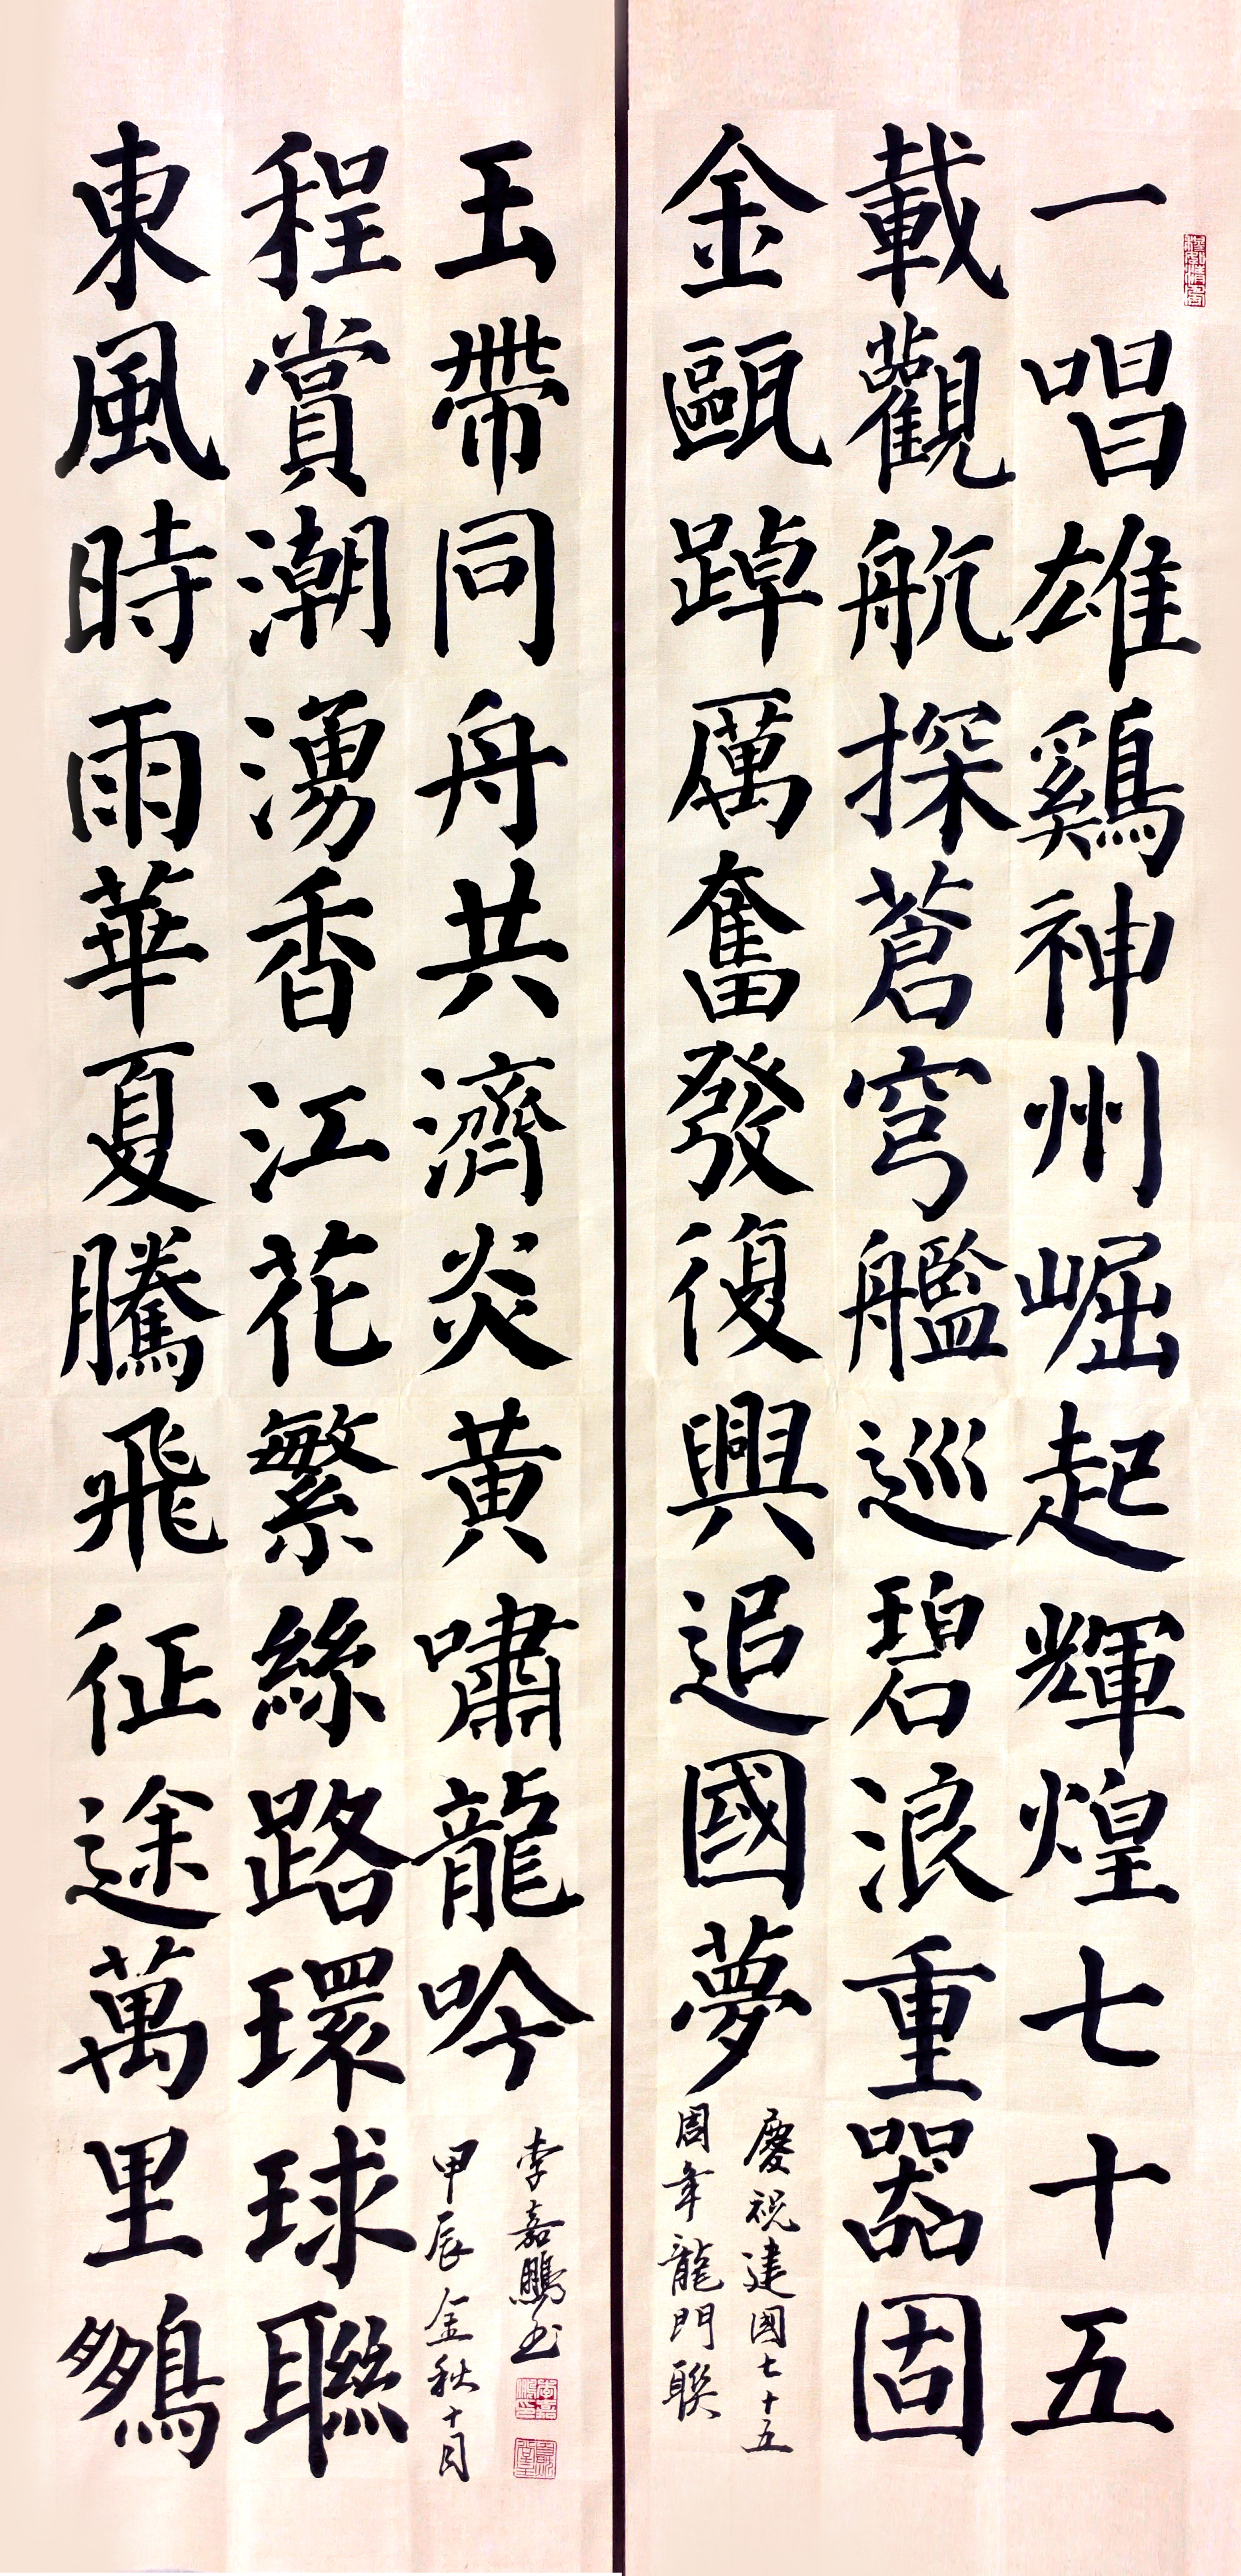 一唱雄鷄神州崛起輝煌七十五
載觀航探蒼穹艦巡碧浪重器固
金甌踔厲奮發復興追國夢
慶祝建國七十五
周年龍門聯
東風時雨華夏騰飛征途萬里鵬
程賞潮湧香江花繁絲路環球聯
玉帶同舟共濟炎黃嘯龍吟
李嘉鵬书
甲辰金秋十月
李嘉鵬印